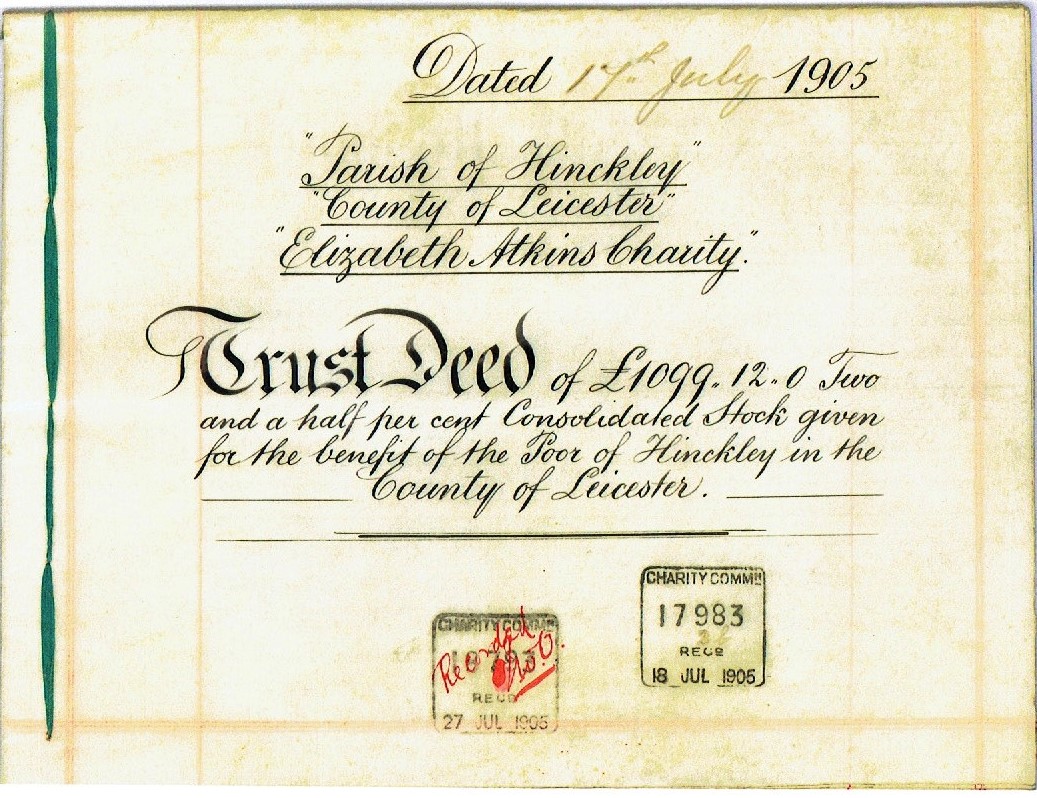 Dated 17th July 1905
"Parish of Hinckley"
"County of Leicester"
"Elizabeth Atkins Charity".
Trust Deed of £1099.. 12.. 0 Two
and a half per cent Consolidated Stock given
for the benefit of the Poor of Hinckley in the
County of Leicester.
CHARITY COMMN
17983
RECD
18 JUL 1905
CHARITY COMMN
Recorded
RECD
27 JUL 1905